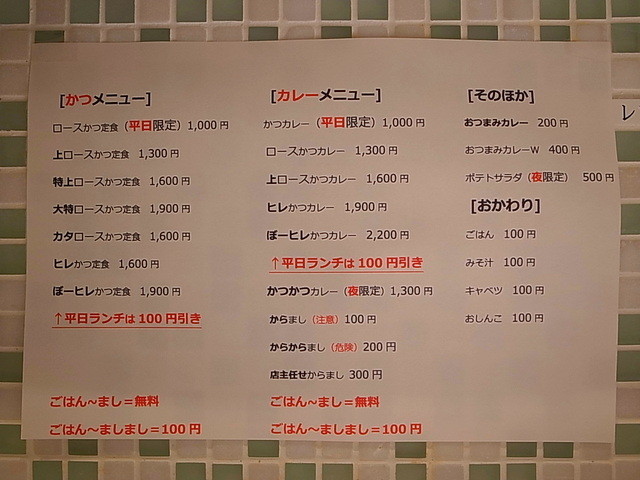 [かつメニュー]
ロースかつ定食（平日限定）1,000円
上ロースかつ定食 1,300円
特上ロースかつ定食 1,600円
大特ロースかつ定食 1,900円
カタロースかつ定食 1,600円
ヒレかつ定食 1,600円
ぼーヒレかつ定食 1,900円
↑平日ランチは100円引き
ごはん～まし＝無料
ごはん～ましまし＝100円
[カレーメニュー]
かつカレー（平日限定）1,000円
ロースかつカレー 1,300円
上ロースかつカレー 1,600円
ヒレかつカレー 1,900円
ぼーヒレかつカレー 2,200円
↑平日ランチは100円引き
かつかつカレー（夜限定）1,300円
からまし（注意）100円
からからまし（危険）200円
店主任せからまし 300円
ごはん～まし＝無料
ごはん～ましまし＝100円
[そのほか]
おつまみカレー 200円
おつまみカレーW 400円
ポテトサラダ（夜限定） 500円
[おかわり]
ごはん 100円
みそ汁 100円
キャベツ 100円
おしんこ 100円
レ